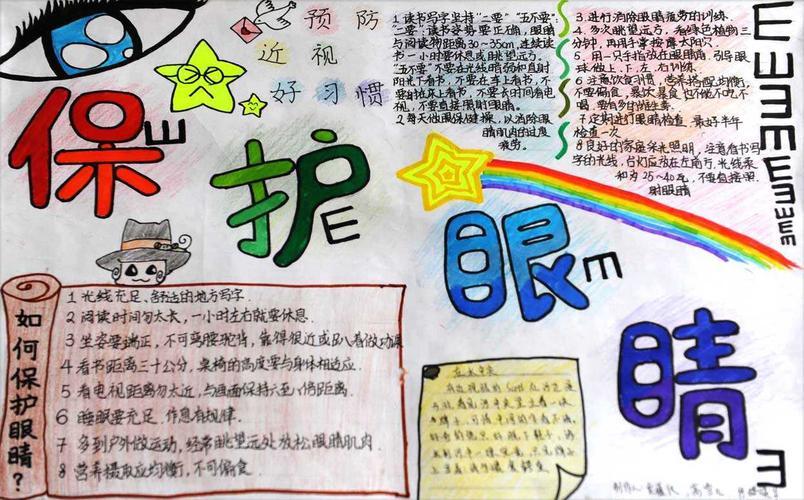 预防
近视
好习惯
保护眼睛
1 读书写字坚持"二要""五不要":
"二要":读书姿势要正确,眼睛
与阅读物距离30~35cm,连续读
书一小时要休息或眺望远方。
"五不要":不要在光线暗弱和直射
阳光下看书,不要在车上看书,不
要躺在床上看书,不要长时间看电
视,不要直接照射眼睛。
2 每天做眼保健操,以消除眼
睛肌肉的过度
疲劳。
3.进行消除眼睛疲劳的训练.
4.多次眺望远方,看绿色植物三
分钟,再用手掌按摩太阳穴.
5.用一只手指放在眼睛前,引导眼
球做上、下、左、右训练.
6.注意饮食习惯,营养搭配均衡,
不要偏食,暴饮暴食也不能不吃不
喝,要有多的维生素.
7定期进行眼睛检查,最好半年
检查一次
8良好的家庭采光照明,注意看书写
字的光线,台灯应放在左前方,光线柔
和为25~40瓦,不要直接照
射眼睛
E
E
m
E
如何保护眼睛?
1 光线充足、舒适的地方写字.
2 阅读时间勿太长,一小时左右就要休息.
3 坐姿要端正,不可弯腰驼背,靠得很近或趴着做功课
4 看书距离三十公分,桌椅的高度要与身体相适应.
5 看电视距离勿太近,与画面保持六至八倍距离.
6 睡眠要充足,作息有规律.
7 多到户外做运动,经常眺望远处放松眼睛肌肉.
8 营养摄取应均衡,不可偏食.
制作人